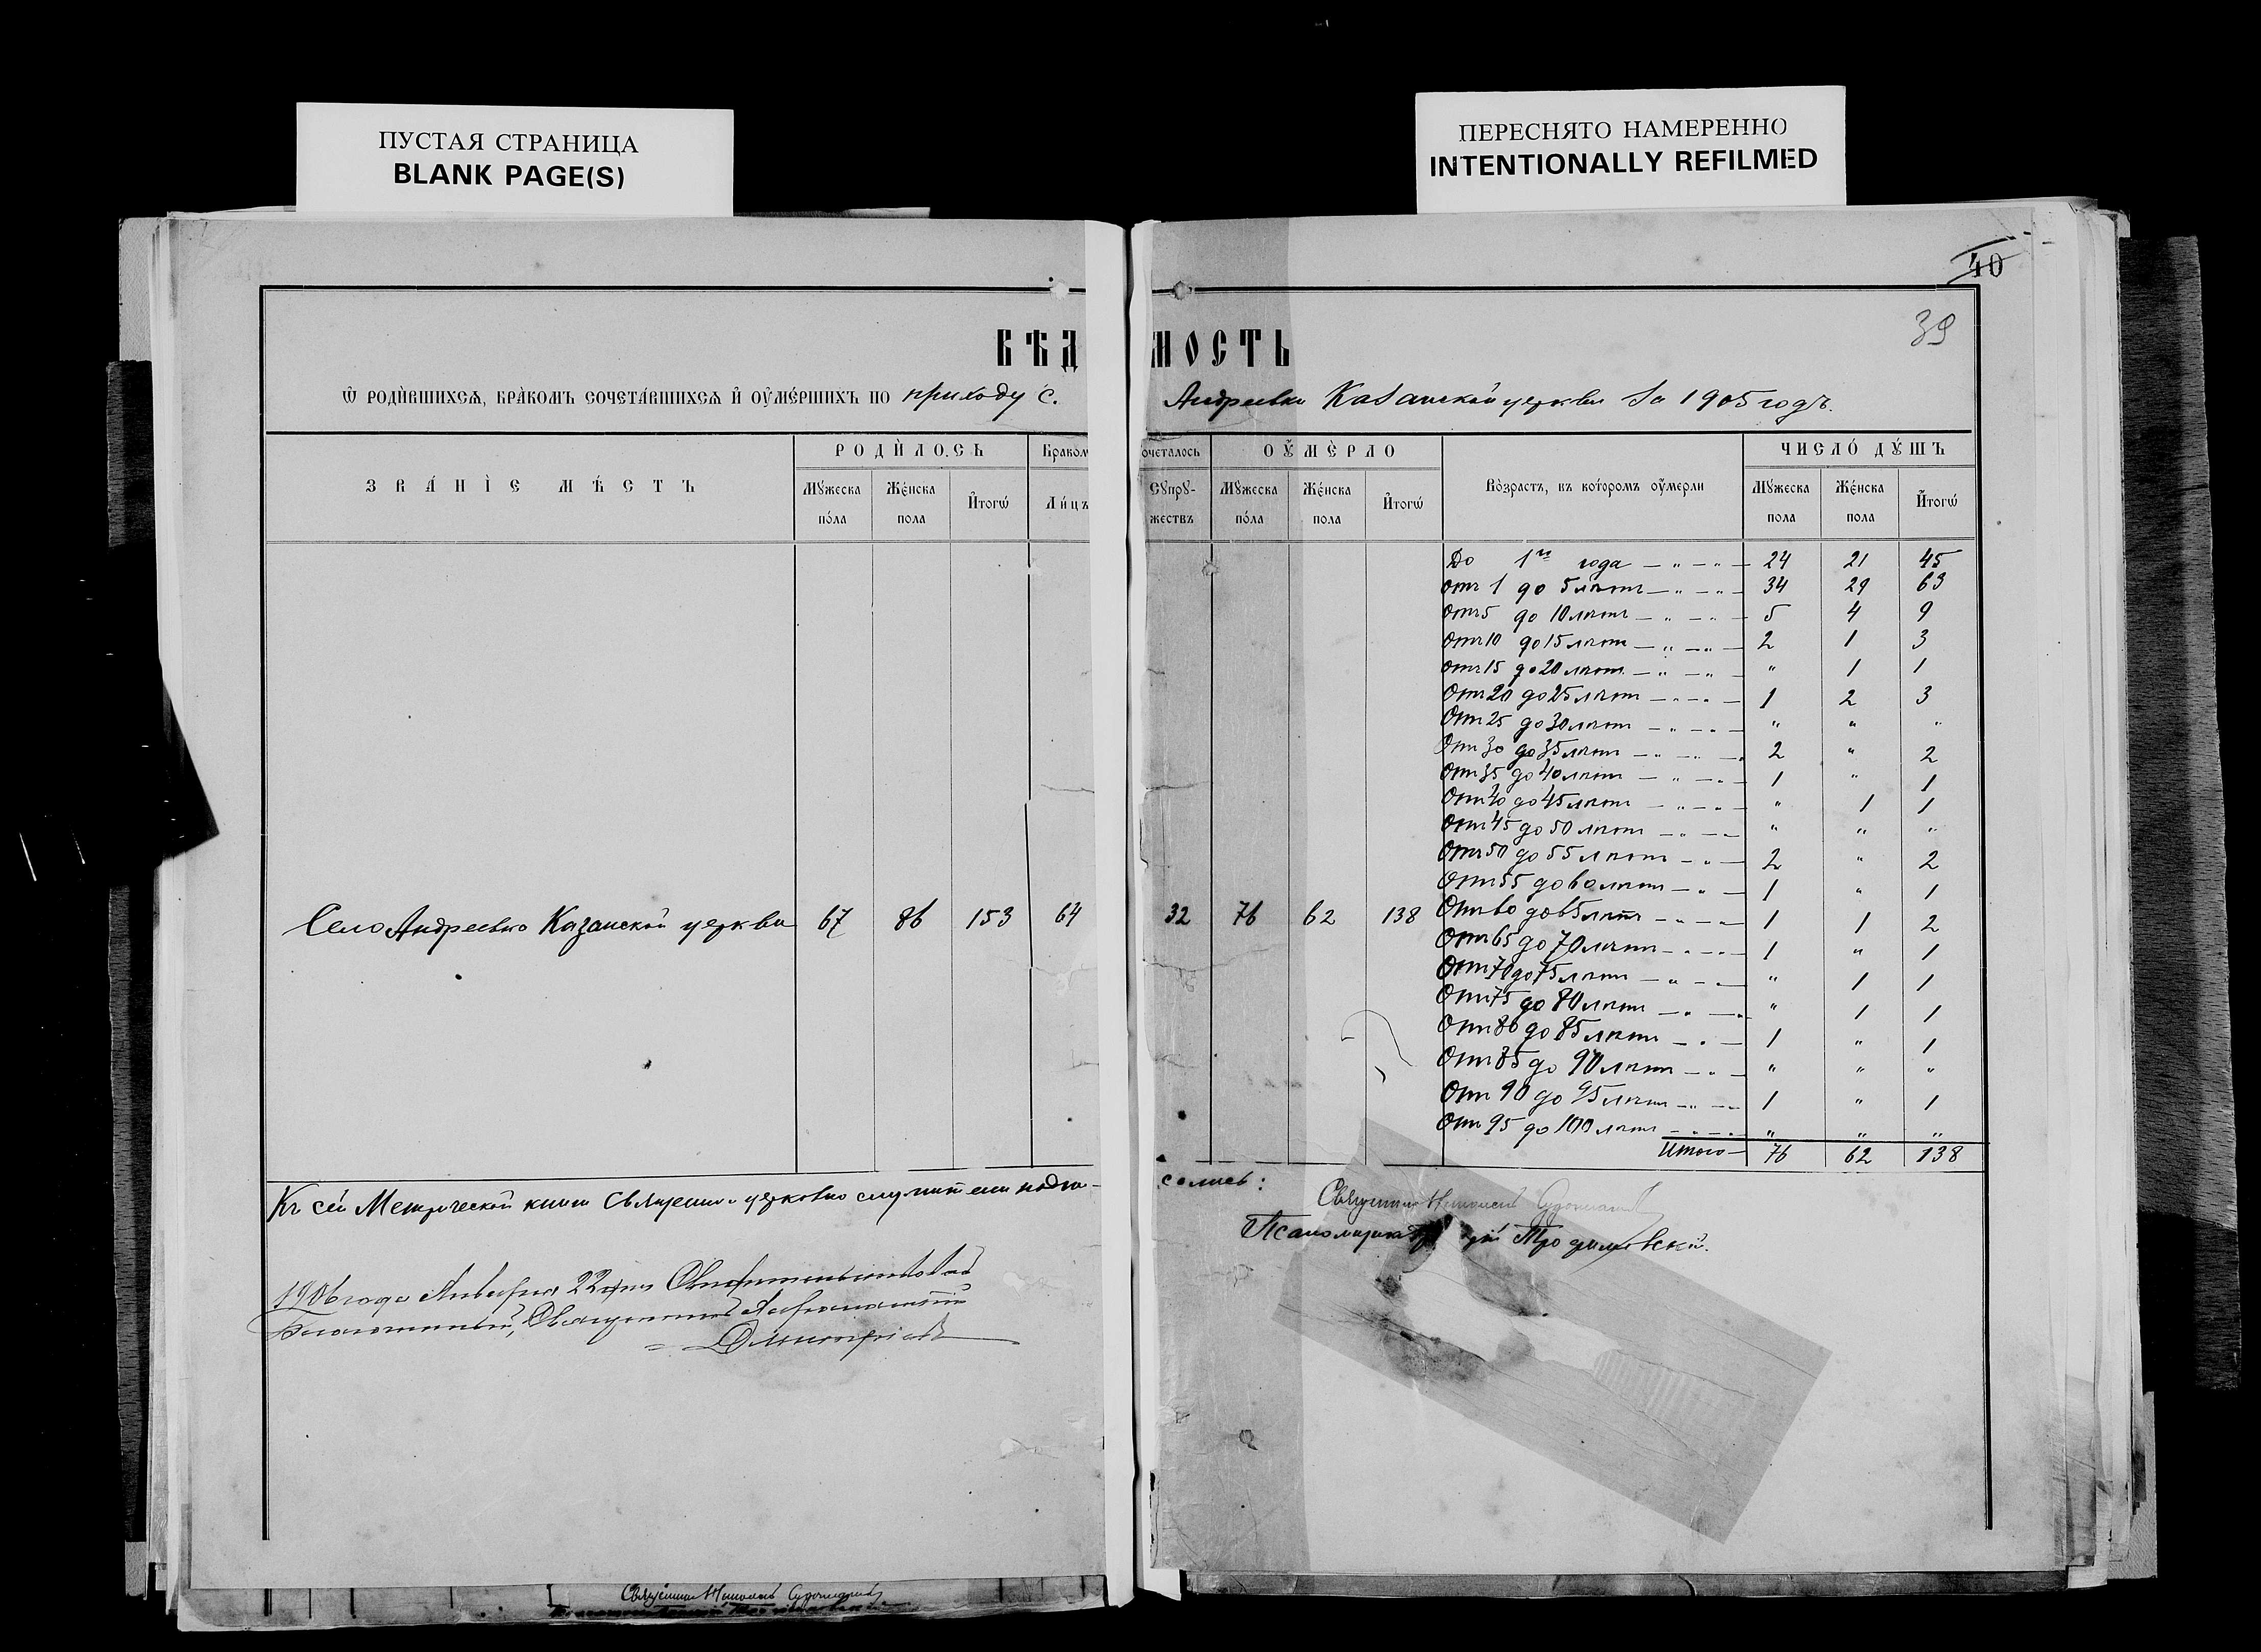 ПУСТАЯ СТРАНИЦА
BLANK PAGE(S)
ПЕРЕСНЯТО НАМЕРЕННО
INTENTIONALLY REFILMED
40
39
ВѢДОМОСТЬ
Ѡ РОДИ́ВШИХСѦ, БРА́КОМЪ СОЧЕТА́ВШИХСѦ И҆ ОУ҆МЕ́РШИХЪ ПО приходу с. Андреевки Казанской церкви за 1905 годъ.
ЗВА́НІЕ МѢ́СТЪ РОДИ́ЛОСЬ Бракомъ сочеталось ОУ҆МЕ́РЛО Во́зрастъ, въ кото́ромъ оу҆мерли ЧИСЛО́ ДУ́ШЪ
Мꙋжеска по́ла Же́нска пола И҆тогѡ Ли́цъ Сꙋпрꙋ-жествъ Мꙋжеска по́ла Же́нска пола И҆тогѡ Мꙋжеска пола Же́нска пола И҆тогѡ
До 1го года — „ — „ — 24 21 45
Отъ 1 до 5 лѣтъ — „ — „ — 34 29 63
Отъ 5 до 10 лѣтъ — „ — „ — 5 4 9
Отъ 10 до 15 лѣтъ — „ — „ — 2 1 3
Отъ 15 до 20 лѣтъ — „ — „ — „ 1 1
Отъ 20 до 25 лѣтъ — „ — „ — 1 2 3
Отъ 25 до 30 лѣтъ — „ — „ — „ „ „
Отъ 30 до 35 лѣтъ — „ — „ — 2 „ 2
Отъ 35 до 40 лѣтъ — „ — „ — 1 „ 1
Отъ 40 до 45 лѣтъ — „ — „ — „ 1 1
Отъ 45 до 50 лѣтъ — „ — „ — „ „ „
Отъ 50 до 55 лѣтъ — „ — 2 „ 2
Отъ 55 до 60 лѣтъ — „ — 1 „ 1
Село Андреевка Казанской церкви 67 86 153 64 32 76 62 138
Отъ 60 до 65 лѣтъ — „ — „ 1 1 2
Отъ 65 до 70 лѣтъ — „ — „ — 1 „ 1
Отъ 70 до 75 лѣтъ — „ — „ — „ 1 1
Отъ 75 до 80 лѣтъ — „ — „ 1 1
Отъ 80 до 85 лѣтъ — „ — 1 „ 1
Отъ 85 до 90 лѣтъ — „ — „ „ „
Отъ 90 до 95 лѣтъ — „ — 1 „ 1
Отъ 95 до 100 лѣтъ — „ — „ „ „
Итого — 76 62 138
Къ сей Метрической книги Священно церковно служители подпи-
сались:
Священникъ Николай
Псаломщикъ Трофимовскій.
1906 года Января 22 дня Свидѣтельствовалъ
Благочинный, Священникъ
Димитріевъ
Священникъ Николай